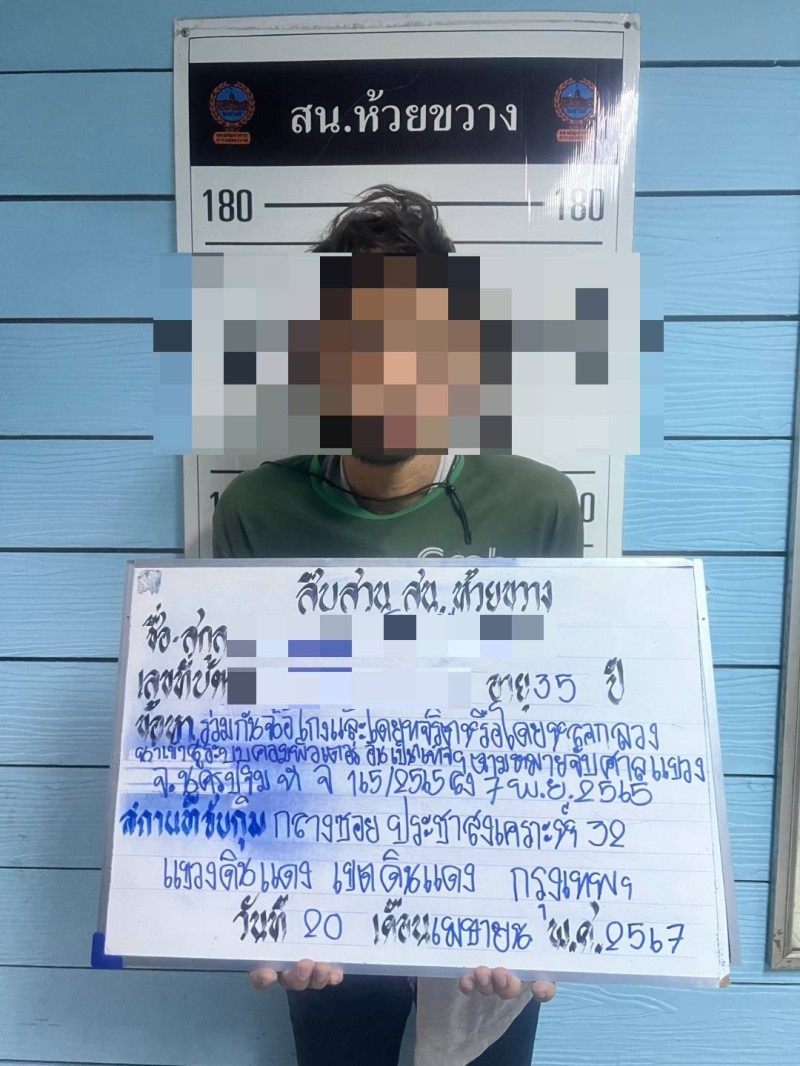 สน.ห้วยขวาง
180 180
สืบสวน สน.ห้วยขวาง
ชื่อ-สกุล
เลขที่บัตร อายุ 35 ปี
ข้อหา ร่วมกันฉ้อโกงและโดยทุจริตหรือโดยหลอกลวง
นำเข้าสู่ระบบคอมพิวเตอร์ อันเป็นเท็จฯ ตามหมายจับศาลแขวง
จ.นครปฐม ที่ จ 165/2565 ลง 7 พ.ย. 2565
สถานที่จับกุม กลางซอย ประชาสงเคราะห์ 32
แขวงดินแดง เขตดินแดง กรุงเทพฯ
วันที่ 20 เดือนเมษายน พ.ศ.2567